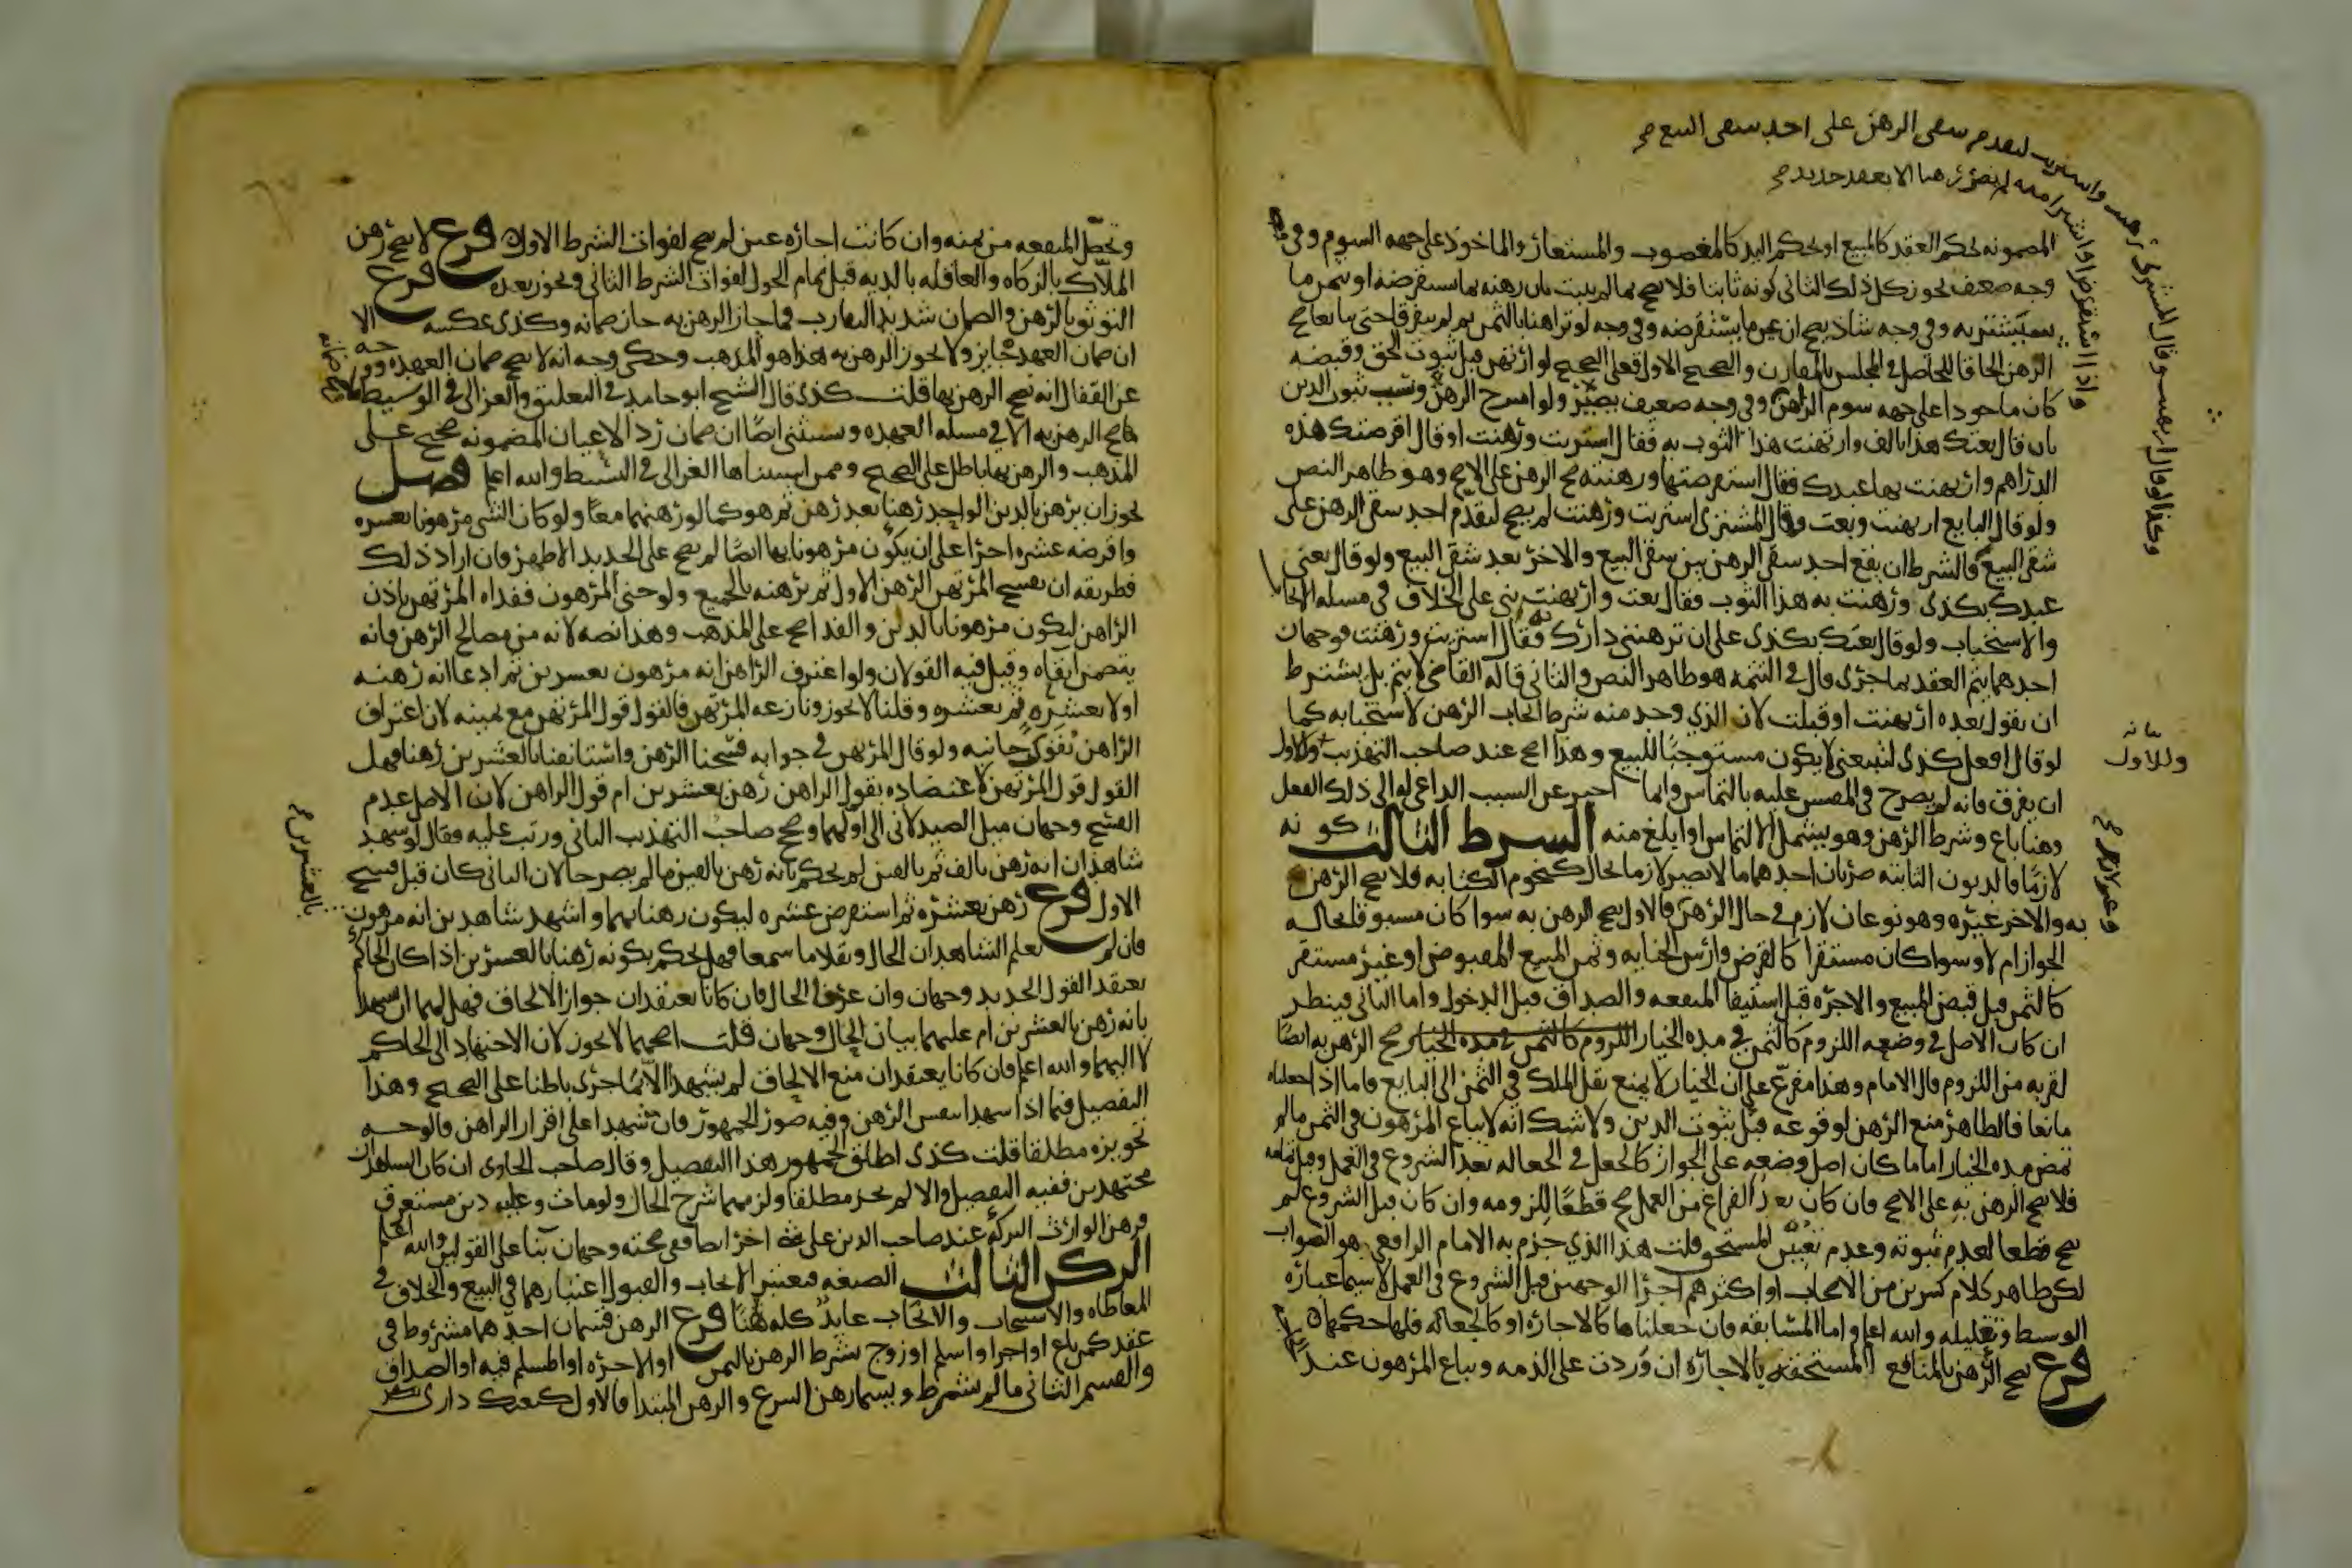 المضمونه بحكم العقد كالمبيع او بحكم اليد كالمغصوب والمستعار والماخوذ على جهه السوم وفي
وجه ضعيف يجوز بكل ذلك الثاني كونه ثابتا فلا يصح بما لم يثبت بان رهنه بما يستقرضه او بثمن ما
سيشتريه وفي وجه شاذ يصح ان عين ما يستقرضه وفي وجه لو تراهنا بالثمن ثم لم يتفرقا حتى تبايعا صح
الرهن الحاقا للحاصل في المجلس بالمقارن والصحيح الاول فعلى الصحيح لو ارتهن قبل ثبوت الحق وقبضه
كان ماخوذا على جهه سوم الرهن وفي وجه ضعيف يصير ولو امتزج الرهن وسبب ثبوت الدين
بان قال بعتك هذا بالف وارتهنت هذا الثوب به فقال اشتريت ورهنت او قال اقرضتك هذه
الدراهم وارتهنت بها عبدك فقال استقرضتها ورهنته صح الرهن على الاصح وهو ظاهر النص
ولو قال البايع ارتهنت وبعت وقال المشتري اشتريت ورهنت لم يصح لتقدم احد شقي الرهن على
شقي البيع فالشرط ان يقع احد شقي الرهن بين شقي البيع والاخر بعد شقي البيع ولو قال بعني
عبدك بكذى ورهنت به هذا الثوب فقال بعت وارتهنت بني على الخلاف في مسله الايجاب
والاستيجاب ولو قال بعتك بكذى على ان ترهنني دارك به فقال اشتريت ورهنت فوجهان
احدهما يتم العقد بما جرى قال في التتمه هو ظاهر النص والثاني قاله القاضي لا يتم بل يشترط
ان يقول بعده ارتهنت او قبلت لان الذي وجد منه شرط ايجاب الرهن لا استيجابه كما
لو قال افعل كذى لتبيعني لا يكون مستوجبا للبيع وهذا اصح عند صاحب التهذيب وللاول
ان يفرق فانه لم يصرح في المقيس عليه بالتماس وانما اخبر عن السبب الداعي له الى ذلك الفعل
وهنا باع وشرط الرهن وهو يشمل الالتماس او ابلغ منه الشرط الثالث كونه
لازما فالديون الثابته ضربان احدهما ما لا يصير لازما بحال كنجوم الكتابه فلا يصح الرهن
به والاخر غيره وهو نوعان لازم في حال الرهن فالاول يصح الرهن به سوا كان مسبوقا بحاله
الجواز ام لا وسوا كان مستقرا كالقرض وارش الجنايه وثمن المبيع المقبوض او غير مستقر
كالثمن قبل قبض المبيع والاجره قبل استيفا المنفعه والصداق قبل الدخول واما الثاني فينظر
ان كان الاصل في وضعه اللزوم كالثمن في مده الخيار صح الرهن به ايضا
لقربه من اللزوم قال الامام وهذا مفرع على ان الخيار لا يمنع نقل الملك في الثمن الى البايع فاما اذا جعلناه
مانعا فالظاهر منع الرهن لوقوعه قبل ثبوت الدين ولا شك انه لا يباع المرهون في الثمن ما لم
تمض مده الخيار اما ما كان اصل وضعه على الجواز كالجعل في الجعاله بعد الشروع في العمل وقبل تمامه
فلا يصح الرهن به على الاصح وان كان بعد الفراغ من العمل صح قطعا للزومه وان كان قبل الشروع لم
يصح قطعا لعدم ثبوته وعدم تعين المستحق قلت هذا الذي جزم به الامام الرافعي هو الصواب
لكن ظاهر كلام كثيرين من الاصحاب او اكثرهم اجرا الوجهين قبل الشروع في العمل لا سيما عباره
الوسيط وتعليله والله اعلم واما المسابقه فان جعلناها كالاجاره او كالجعاله فلها حكمهما
فرع يصح الرهن بالمنافع المستحقه بالاجاره ان وردت على الذمه ويباع المرهون عند
لتقدم شقي الرهن على احد شقي البيع صح
لم يصر رهنا الا بعقد جديد صح
وكذا لو قال ارتهنت وقال المشتري رهنت واشتريت
واذا استقرض او اشترا منه
وللاول
وتحصل المنفعه من ثمنه وان كانت اجاره عين لم يصح لفوات الشرط الاول فرع لا يصح رهن
الملاك بالزكاه والعاقله بالديه قبل تمام الحول لفوات الشرط الثاني ويجوز بعده فرع
التوثق بالرهن والضمان شديد التقارب فما جاز الرهن به جاز ضمانه وكذى عكسه الا
ان ضمان العهده جايز ولا يجوز الرهن به هذا هو المذهب وحكي وجه انه لا يصح ضمان العهده ووجه
عن القفال انه يصح الرهن بها قلت كذى قال الشيخ ابو حامد في التعليق والغزالي في الوسيط
ما صح الرهن به الا في مسله العهده ويستثنى ايضا ان ضمان رد الاعيان المضمونه صحيح على
المذهب والرهن بها باطل على الصحيح وممن استثناها الغزالي في البسيط والله اعلم فصل
يجوز ان يرهن بالدين الواحد رهنا بعد رهن ثم هو كما لو رهنهما معا ولو كان الشي مرهونا بعشره
واقرضه عشره اخرى على ان يكون مرهونا بها ايضا لم يصح على الجديد الاظهر وان اراد ذلك
فطريقه ان يفسخ المرتهن الرهن الاول ثم يرهنه بالجميع ولو جنى المرهون ففداه المرتهن باذن
الراهن ليكون مرهونا بالدين والفدا صح على المذهب وهذا نصه لانه من مصالح الرهن فانه
يتضمن ابقاه وقيل فيه القولان ولو اعترف الراهن انه مرهون بعشرين ثم ادعا انه رهنه
اولا بعشره ثم بعشره وقلنا لا يجوز ونازعه المرتهن فالقول قول المرتهن مع يمينه لان اعتراف
الراهن يقوي جانبه ولو قال المرتهن في جوابه فسخنا الرهن واستانفنا بالعشرين رهنا فهل
القول قول المرتهن لاعتضاده بقول الراهن رهن بعشرين ام قول الراهن لان الاصل عدم
الفسخ وجهان ميل الصيدلاني الى اولهما وصحح صاحب التهذيب الثاني ورتب عليه فقال لو شهد
شاهدان انه رهن بالف ثم بالفين لم يحكم بانه رهن بالفين ما لم يصرحا لان الثاني كان قبل فسخ
الاول فرع رهن بعشره ثم استقرض عشره ليكون رهنا بهما واشهد شاهدين انه مرهون
فان لم يعلم الشاهدان الحال ونقلا ما سمعا فهل يحكم بكونه رهنا بالعشرين اذا كان الحاكم
يعتقد القول الجديد وجهان وان عرفا الحال فان كانا يعتقدان جواز الالحاق فهل لهما ان يشهدا
بانه رهن بالعشرين ام عليهما بيان الحال وجهان قلت اصحهما لا يجوز لان الاجتهاد الى الحاكم
لا اليهما والله اعلم فان كانا يعتقدان منع الالحاق لم يشهدا الا بما جرى باطنا على الصحيح وهذا
التفصيل فيما اذا شهدا بنفس الرهن وفيه صور الجمهور فان شهدا على اقرار الراهن فالوجه
تجويزه مطلقا قلت كذى اطلق الجمهور هذا التفصيل وقال صاحب الحاوي ان كان الشاهدان
مجتهدين ففيه التفصيل والا لم يجز مطلقا ولزمهما شرح الحال ولو مات وعليه دين مستغرق
فرهن الوارث التركه عند صاحب الدين على شي اخر ايضا ففي صحته وجهان بنا على القولين والله اعلم
الركن الثالث الصيغه فيعتبر الايجاب والقبول اعتبارهما في البيع والخلاف في
المعاطاه والاستيجاب والايجاب عايد كله هنا فرع الرهن قسمان احدهما مشروط في
عقد كمن باع او اجر او اسلم او زوج بشرط الرهن بالثمن او الاجره او المسلم فيه او الصداق
والقسم الثاني ما لم يشرط ويسما رهن التبرع والرهن المبتدا فالاول كبعتك داري
بالعشرين صح